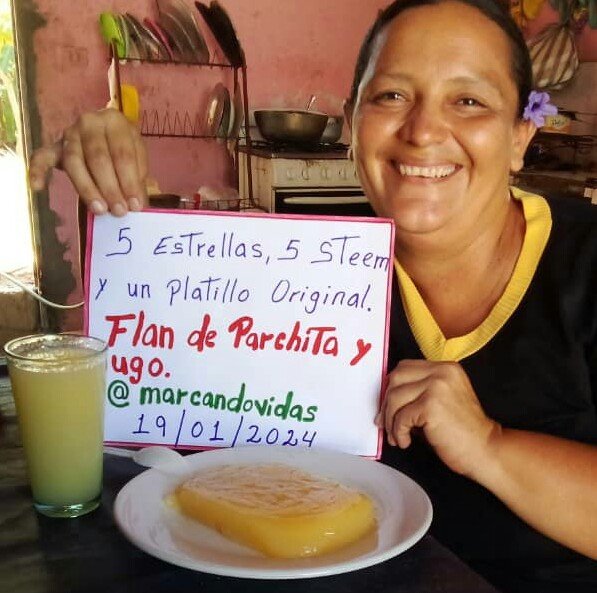 5 Estrellas, 5 Steem
y un Platillo Original.
Flan de Parchita y
ugo.
@marcandovidas
19/01/2024